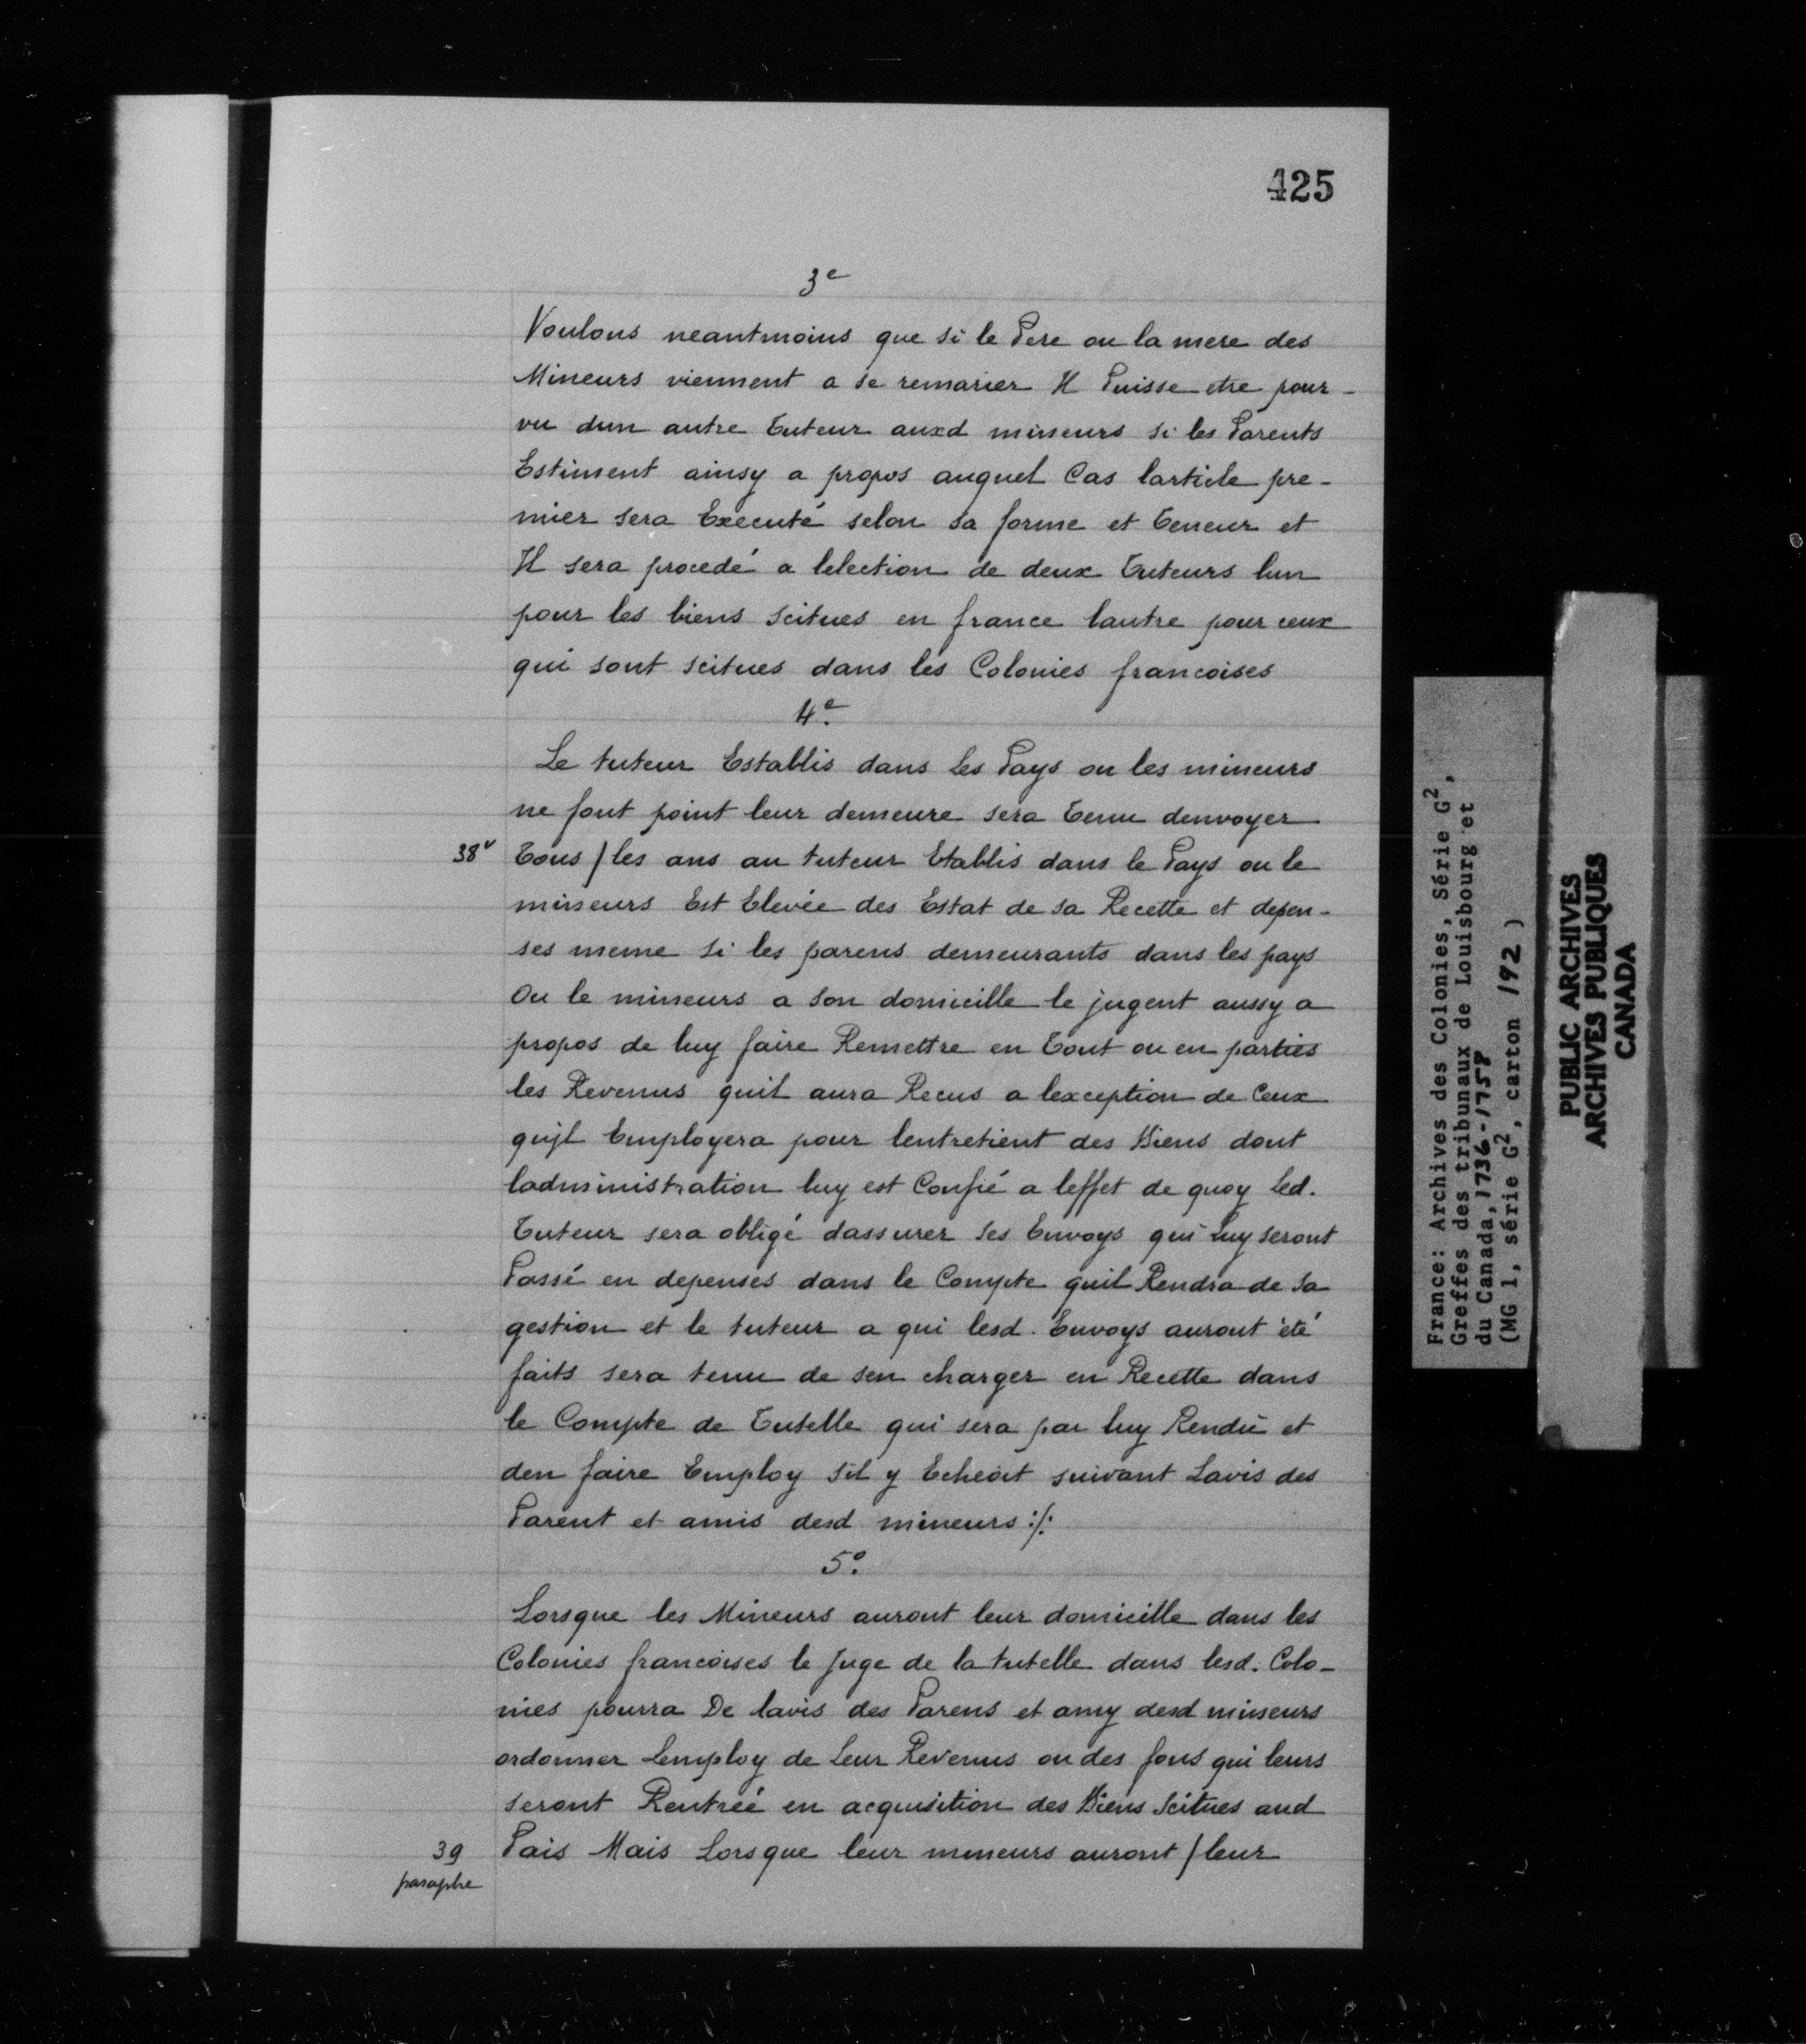 425
3e
Voulons neantmoins que si le Pere ou la mere des
Mineurs viennent a se remarier Il Puisse etre pour-
vu dun autre Tuteur auxd mineurs si les Parents
Estiment ainsy a propos auquel Cas larticle pre-
mier sera Executé selon sa forme et Teneur et
Il sera procedé a lelection de deux Tuteurs lun
pour les biens scitues en france lautre pour ceux
qui sont scitues dans les Colonies francoises
4e.
Le tuteur Establis dans Les Pays ou les mineurs
ne font point leur demeure sera Tenu denvoyer
38v Tous / les ans au tuteur Etablis dans le Pays ou le
mineurs Est Elevée des Estat de sa Recette et depen-
ses meme si les parens demeurants dans les pays
Ou le mineurs a son domicille le jugent aussy a
propos de luy faire Remettre en Tout ou en parties
les Revenus quil aura Recus a lexception de Ceux
qujl Employera pour lentretient des Biens dont
ladministration luy est Confié a leffet de quoy Led.
Tuteur sera obligé dassurer ses Envoys qui Luy seront
Passé en depenses dans le Compte quil Rendra de sa
gestion et le tuteur a qui lesd. Envoys auront été
faits sera tenu de sen charger en Recette dans
le Compte de Tutelle qui sera par luy Rendu et
den faire Employ sil y Echeoit suivant Lavis des
Parent et amis desd mineurs :/:
5o.
Lorsque les Mineurs auront leur domicille dans les
Colonies francoises le Juge de la tutelle dans lesd. Colo-
nies pourra De lavis des Parens et amy desd mineurs
ordonner Lemploy de Leur Revenus ou des fons qui leurs
seront Rentreé en acquisition des Biens Scitues aud
39 Pais Mais Lorsque leur mineurs auront / leur
paraphe
France: Archives des Colonies, Série G2,
Greffes des tribunaux de Louisbourg et
du Canada, 1736-1758
(MG 1, série G2, carton 192)
PUBLIC ARCHIVES
ARCHIVES PUBLIQUES
CANADA